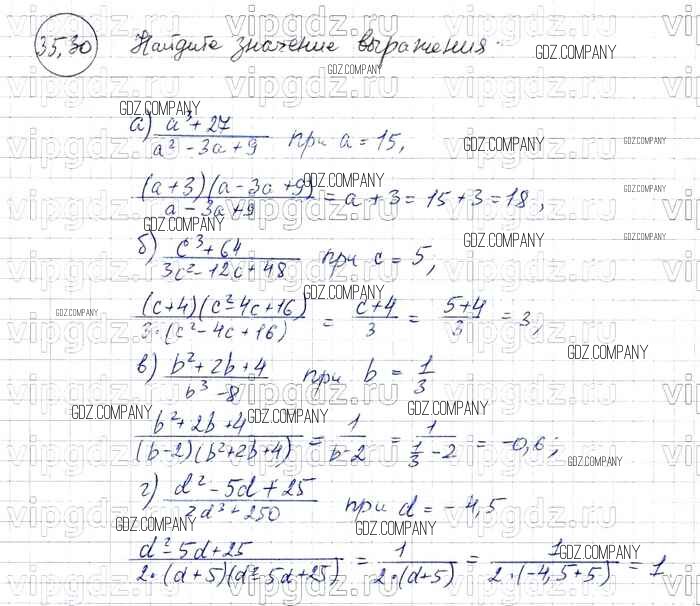 35,30 Найдите значение выражения.
а) (a³ + 27)/(a² - 3a + 9) при a = 15,
(a + 3)(a - 3a + 9)/(a - 3a + 9) = a + 3 = 15 + 3 = 18,
б) (c³ + 64)/(3c² - 12c + 48) при c = 5,
(c+4)(c² - 4c + 16)/(3·(c² - 4c + 16)) = (c+4)/3 = (5+4)/3 = 3,
в) (b² + 2b + 4)/(b³ - 8) при b = 1/3
(b² + 2b + 4)/((b-2)(b² + 2b + 4)) = 1/(b-2) = 1/(1/3 - 2) = -0,6;
г) (d² - 5d + 25)/(2d³ + 250) при d = -4,5
(d² - 5d + 25)/(2·(d+5)(d² - 5d + 25)) = 1/(2·(d+5)) = 1/(2·(-4,5+5)) = 1
GDZ.COMPANY
vipgdz.ru